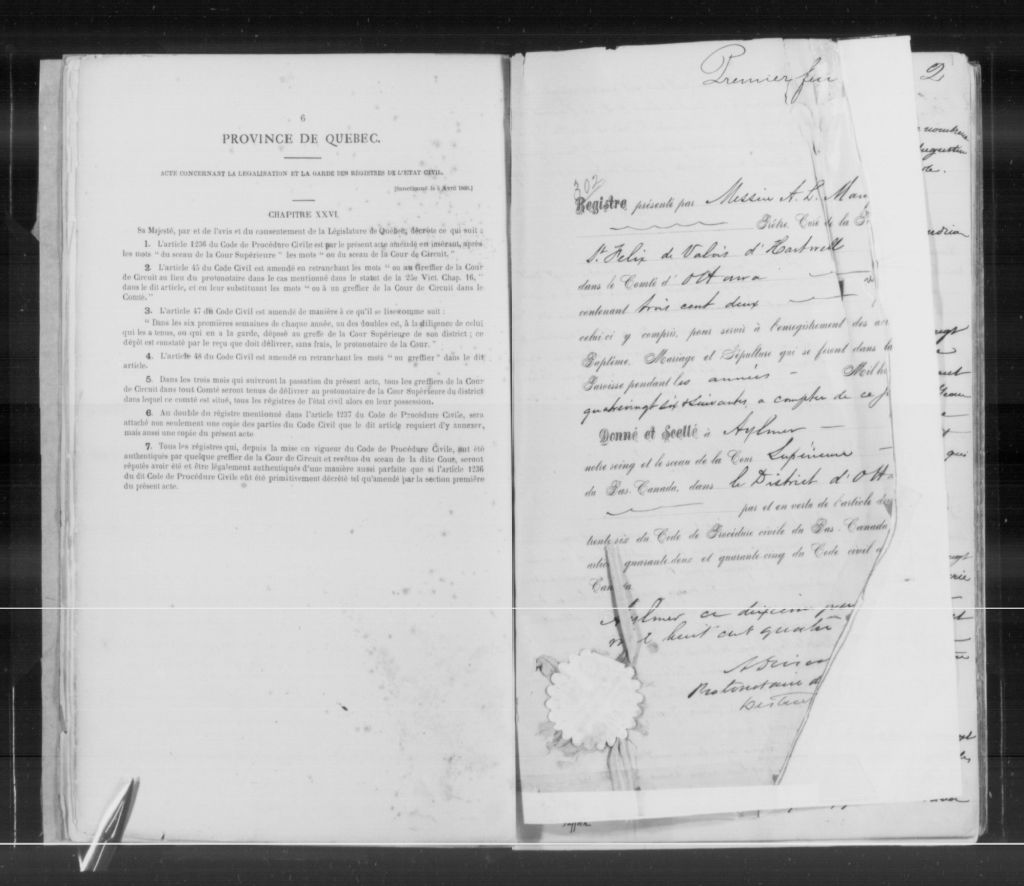 6
PROVINCE DE QUEBEC.
ACTE CONCERNANT LA LEGALISATION ET LA GARDE DES RÉGISTRES DE L'ETAT CIVIL.
[Sanctionné le 5 Avril 1869.]
CHAPITRE XXVI.
Sa Majesté, par et de l'avis et du consentement de la Législature de Québec, décrète ce qui suit :
1. L'article 1236 du Code de Procédure Civile est par le présent acte amendé en insérant, après
les mots " du sceau de la Cour Supérieure " les mots " ou du sceau de la Cour de Circuit."
2. L'article 45 du Code Civil est amendé en retranchant les mots " ou au Greffier de la Cour
de Circuit au lieu du protonotaire dans le cas mentionné dans le statut de la 25e Vict. Chap. 16, "
dans le dit article, et en leur substituant les mots " ou à un greffier de la Cour de Circuit dans le
Comté."
3. L'article 47 du Code Civil est amendé de manière à ce qu'il se lise comme suit :
" Dans les six premières semaines de chaque année, un des doubles est, à la diligence de celui
qui les a tenus, ou qui en a la garde, déposé au greffe de la Cour Supérieure de son district ; ce
dépôt est constaté par le reçu que doit délivrer, sans frais, le protonotaire de la Cour. "
4. L'article 48 du Code Civil est amendé en retranchant les mots " ou greffier" dans le dit
article.
5. Dans les trois mois qui suivront la passation du présent acte, tous les greffiers de la Cour
de Circuit dans tout Comté seront tenus de délivrer au protonotaire de la Cour Supérieure du district
dans lequel ce comté est situé, tous les régistres de l'état civil alors en leur possession.
6. Au double du régistre mentionné dans l'article 1237 du Code de Procédure Civile, sera
attaché non seulement une copie des parties du Code Civil que le dit article requiert d'y annexer,
mais aussi une copie du présent acte
7. Tous les régistres qui, depuis la mise en vigueur du Code de Procédure Civile, ont été
authentiqués par quelque greffier de la Cour de Circuit et revêtus du sceau de la dite Cour, seront
réputés avoir été et être légalement authentiqués d'une manière aussi parfaite que si l'article 1236
du dit Code de Procédure Civile eût été primitivement décrété tel qu'amendé par la section première
du présent acte.
Premier feu
302
Registre présenté par Messire A. L. Mar
Prêtre, Curé de la P
St. Felix de Valois d'Hartwell
dans le Comté d' Ottawa
contenant trois cent deux
celui-ci y compris, pour servir à l'enregistrement des ac
Baptême, Mariage et Sépulture qui se feront dans la
Paroisse pendant les années - Mil hu
quatrevingt six & suivantes, a compter de ce j
Donné et Scellé à Aylmer
notre seing et le sceau de la Cour Supérieure
du Bas-Canada, dans le District d'Otta
par et en vertu de l'article do
trente-six du Code de Procédure civile du Bas-Canada
artic quarante-deux et quarante-cinq du Code civil d
Can a
Aylmer ce dixieme jour
m l huit cent quatre
Protonotaire d
District
2